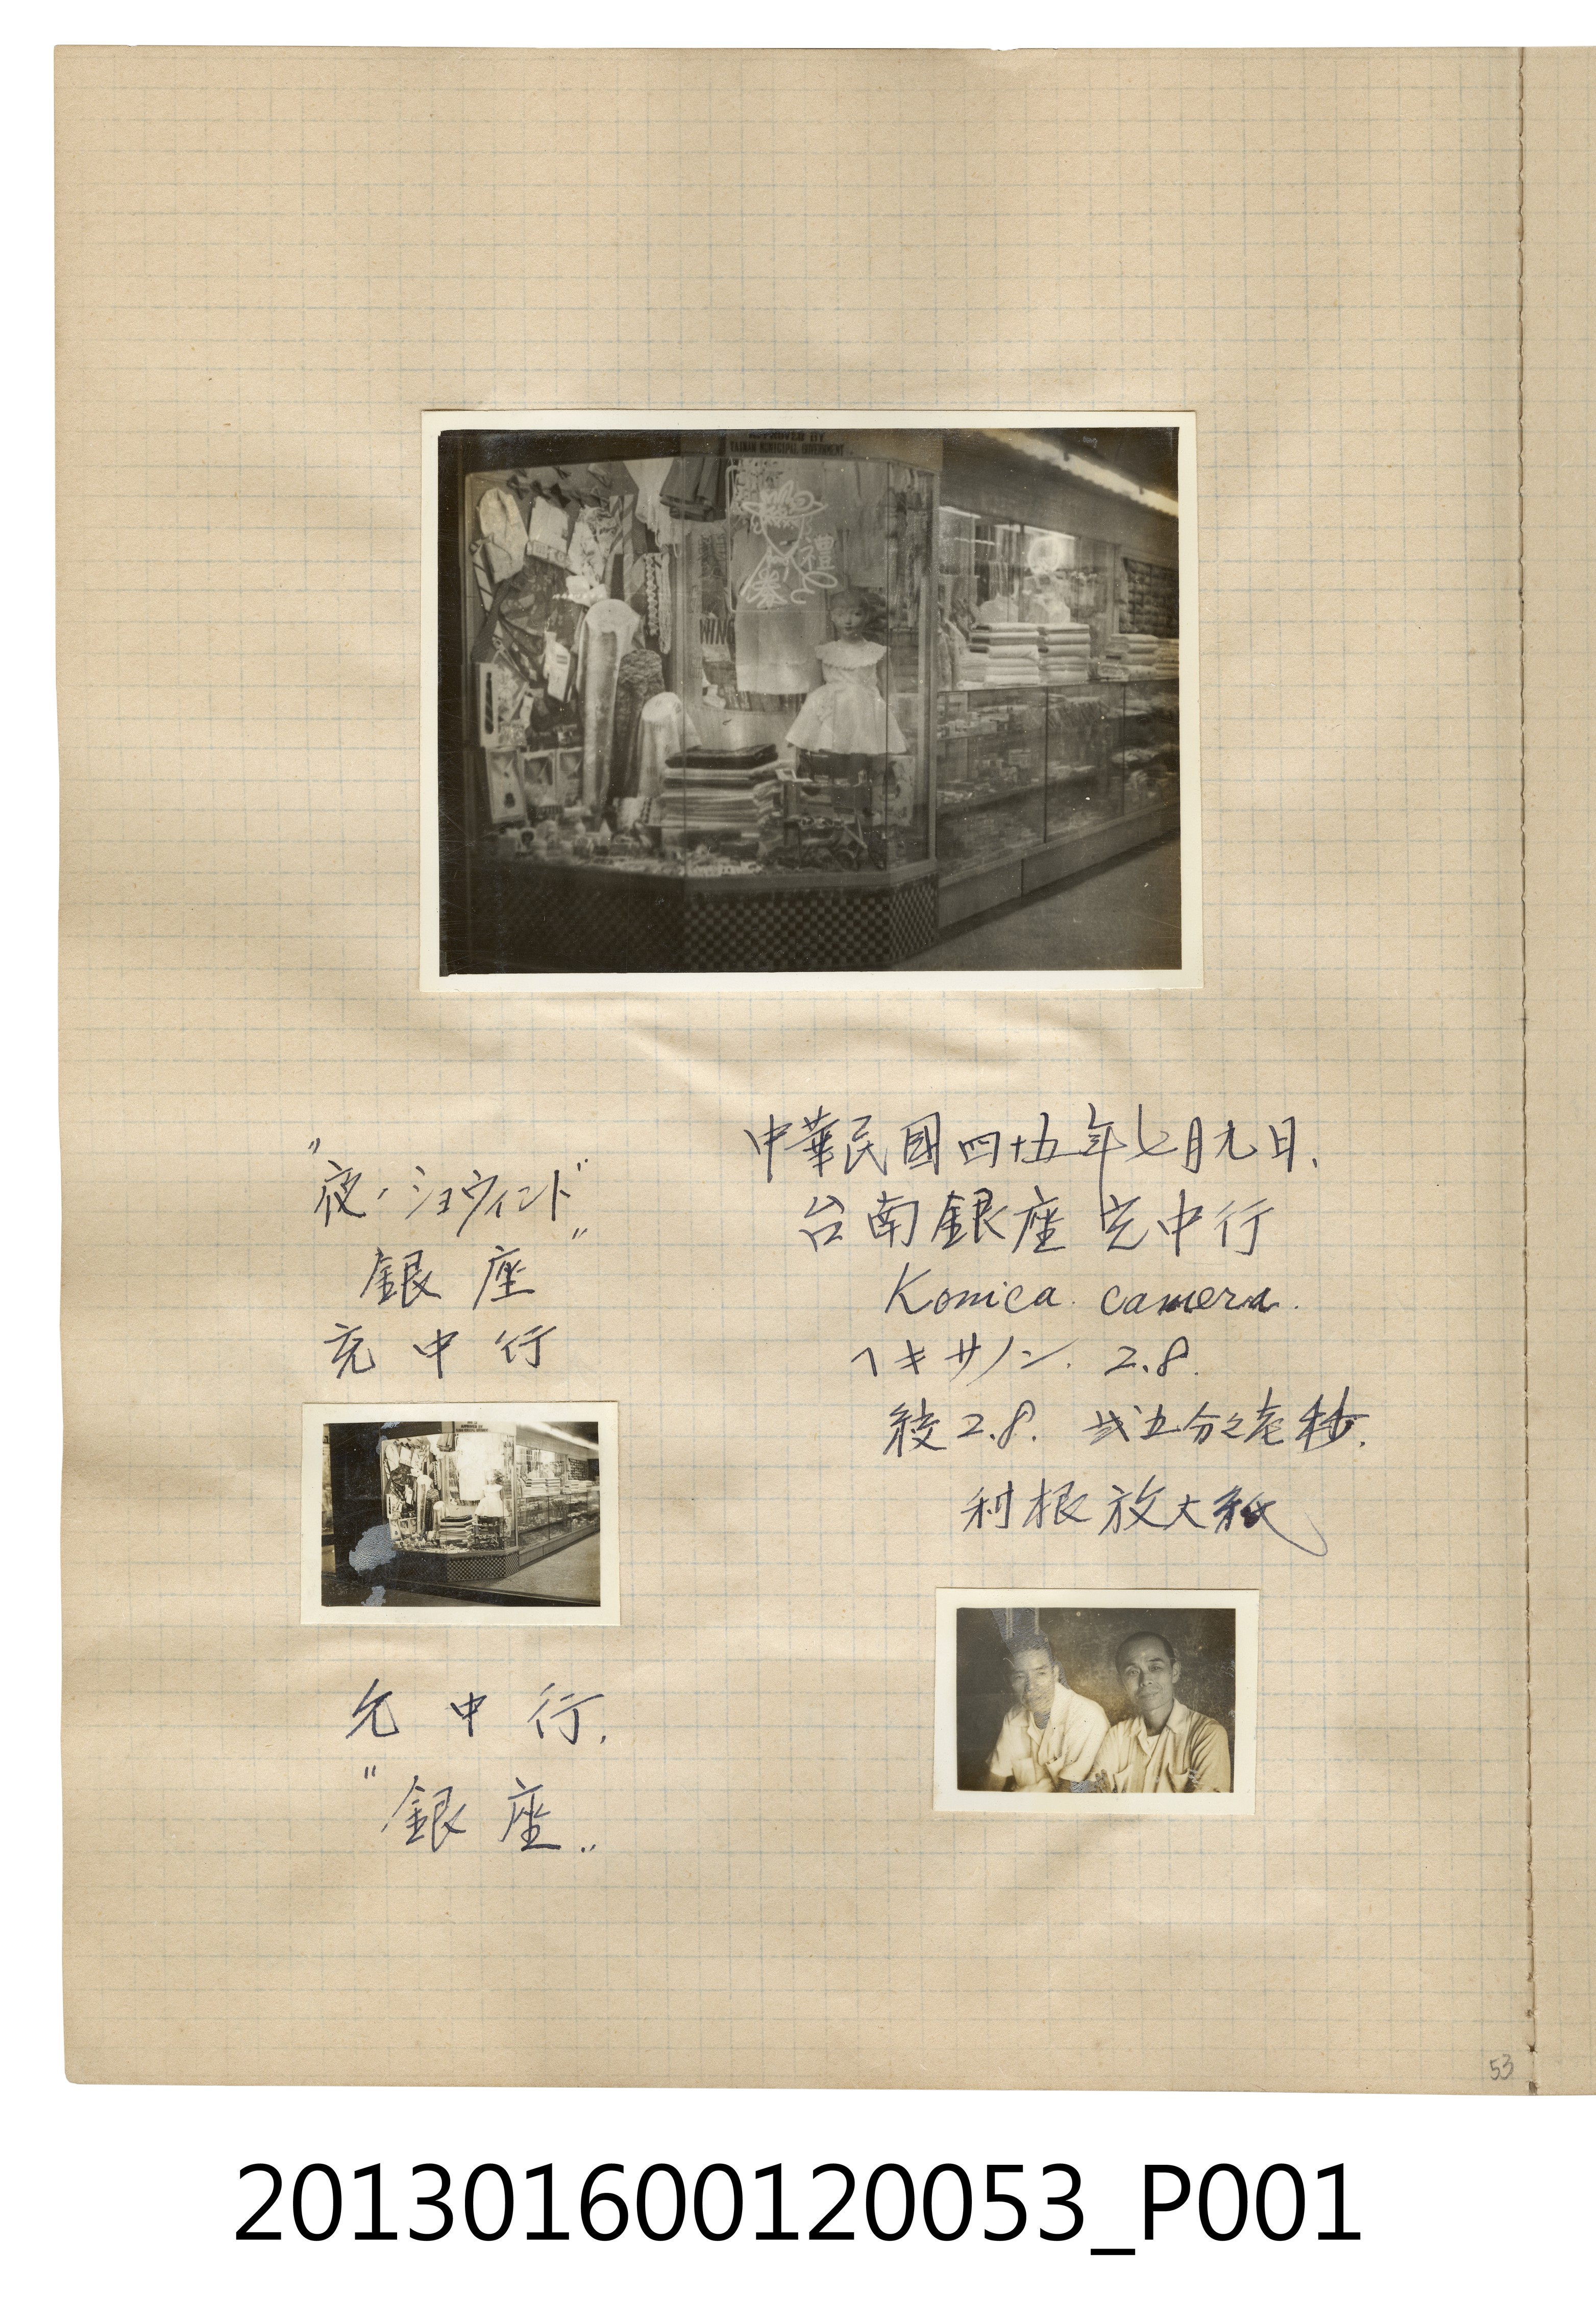 APPROVED BY
TAINAN MUNICIPAL GOVERNMENT
"夜ノショウヰンド"
銀座"
充中行
允中行.
"銀座."
中華民國四十五年七月九日.
台南銀座 允中行
Konica camera.
ヘキサノン. 2.8.
絞2.8. 弍五分之壱秒.
利根放大紙
53
201301600120053_P001